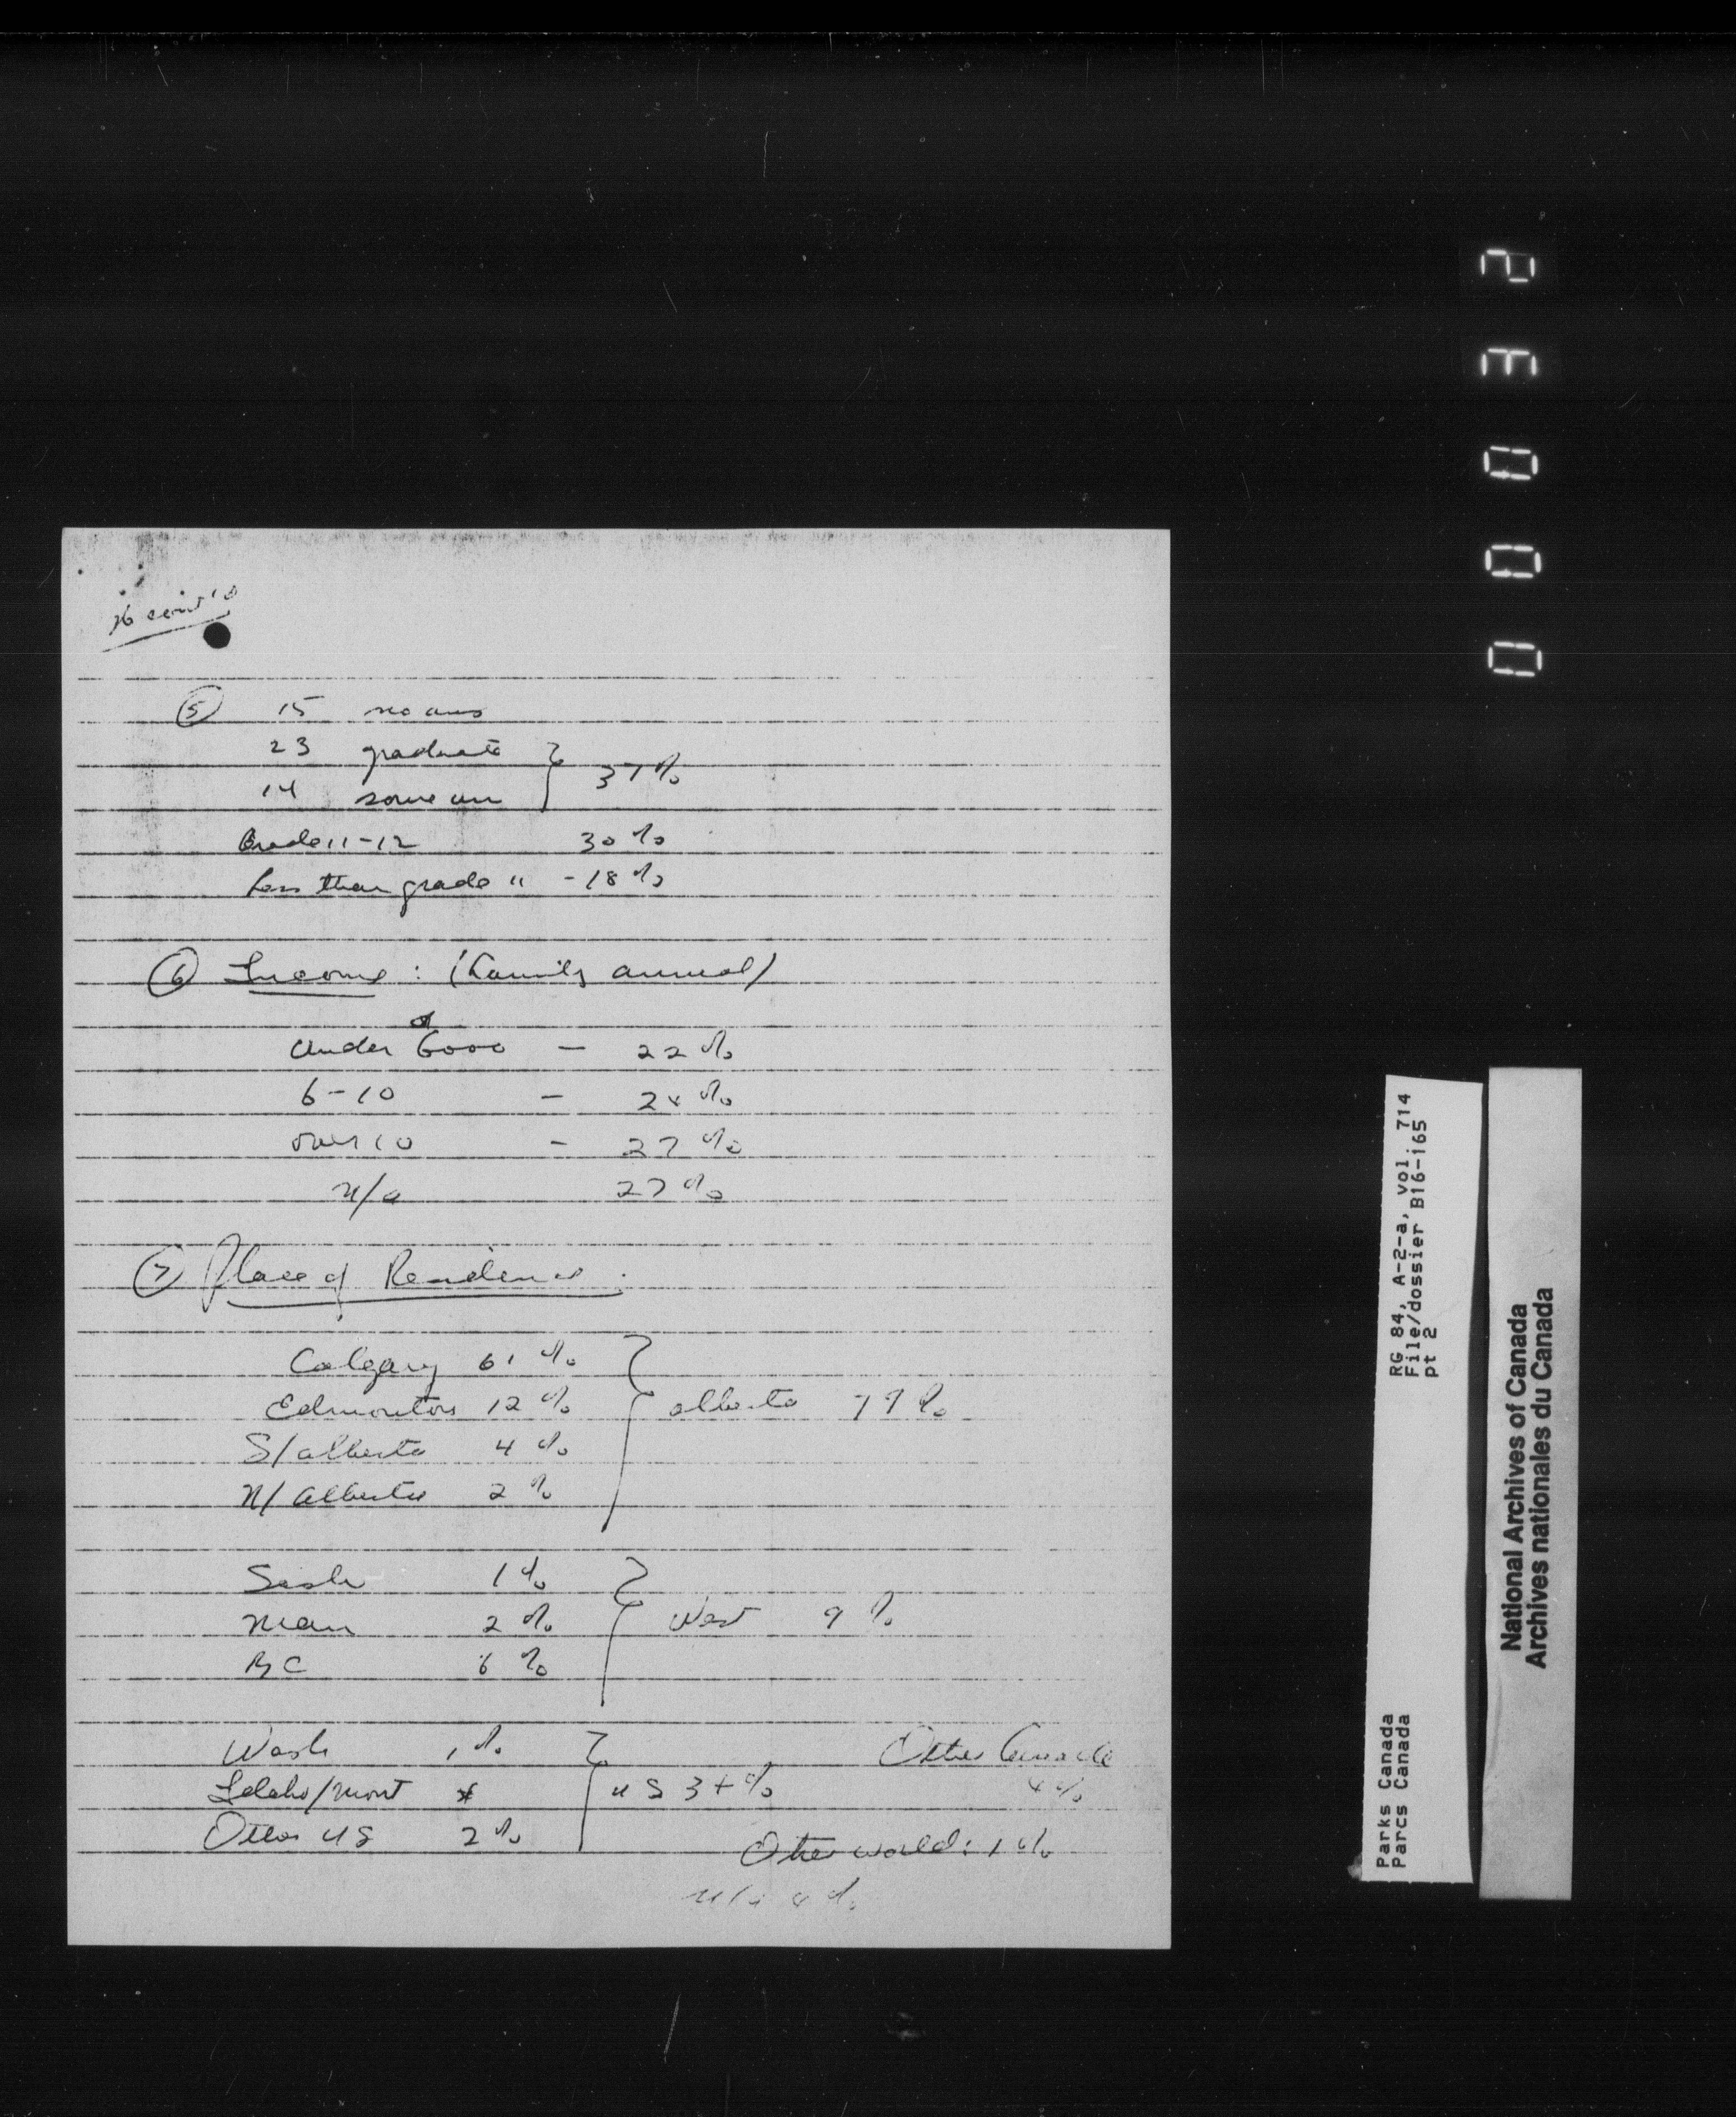 76 cont'd
⑤ 15 no ans
23 graduate } 37%
14 some un
Grade 11-12 30%
Less than grade 11 - 18%
⑥ Income : (family annual)
Under 6000 - 22%
6-10 - 24%
over 10 - 27%
N/a 27%
⑦ Place of Residence.
Calgary 61%
Edmonton 12% } alberta 79%
S/alberta 4%
N/alberta 2%
Sask 1%
Man 2% } West 9%
BC 6%
Wash 1% Other Canada
Idaho/Mont * } US 3+% 4%
Other US 2%
Other world: 1%
N/a 4%
00032
RG 84, A-2-a, vol. 714
File/dossier B16-165
pt 2
Parks Canada
Parcs Canada
National Archives of Canada
Archives nationales du Canada